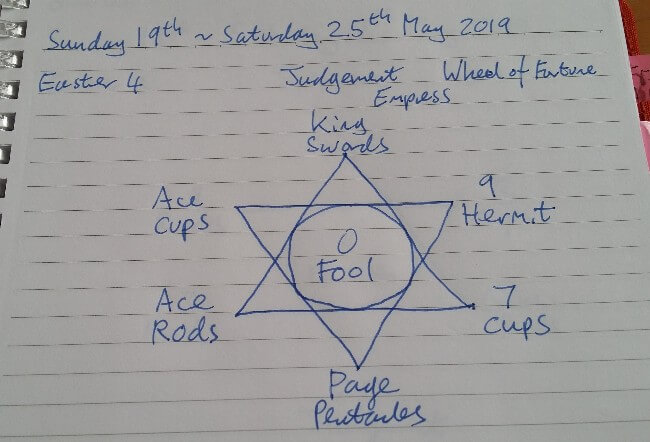 Sunday 19th ~ Saturday 25th May 2019
Easter 4 Judgement Wheel of Fortune
Empress
King
Swords
Ace
Cups
9
Hermit
0
Fool
Ace
Rods
7
Cups
Page
Pentacles